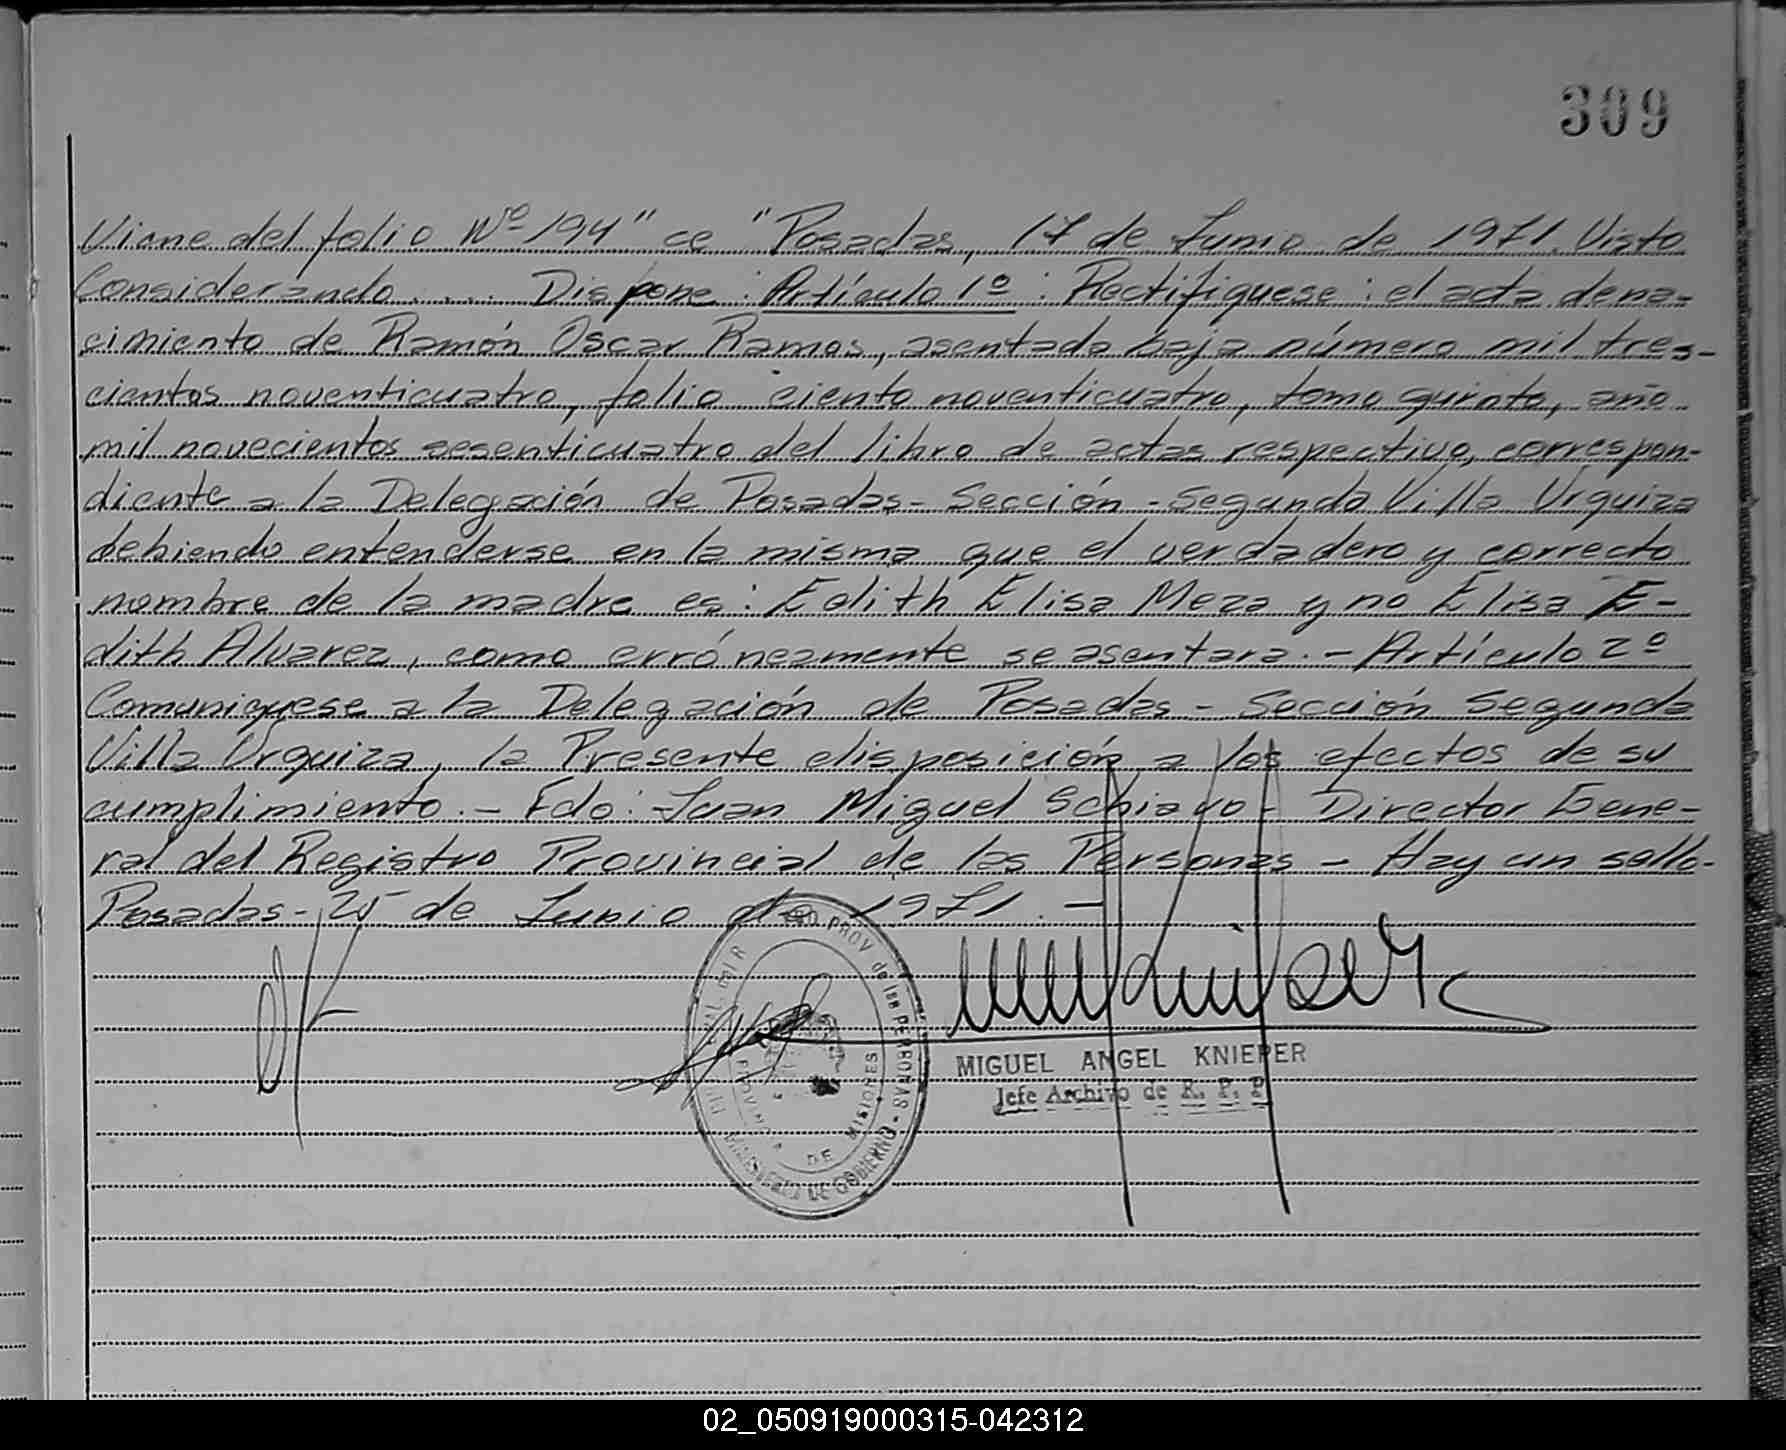 309
Viene del folio Nº 194" ce "Posadas, 17 de Junio de 1971. Visto
Considerando .... Dispone: Artículo 1º: Rectifiquese: el acta de na-
cimiento de Ramón Oscar Ramos, asentada bajo número mil tres-
cientos noventicuatro, folio ciento noventicuatro, tomo quinto, año
mil novecientos sesenticuatro del libro de actas respectivo, correspon-
diente a la Delegación de Posadas - Sección - Segunda Villa Urquiza
debiendo entenderse en la misma que el verdadero y correcto
nombre de la madre es: Edith Elisa Meza y no Elisa E-
dith Alvarez, como erróneamente se asentara. - Artículo 2º
Comuniquese a la Delegación de Posadas - Sección Segunda
Villa Urquiza, la Presente disposición a los efectos de su
cumplimiento. - Fdo: Juan Miguel Schiavo - Director Gene-
ral del Registro Provincial de las Personas - Hay un sello-
Posadas - 25 de Junio de 1971. -
PROV. de las PERSONAS - MINISTERIO DE GOBIERNO
PROVINCIA DE MISIONES
MIGUEL ANGEL KNIEPER
Jefe Archivo de R. P. P.
02_050919000315-042312